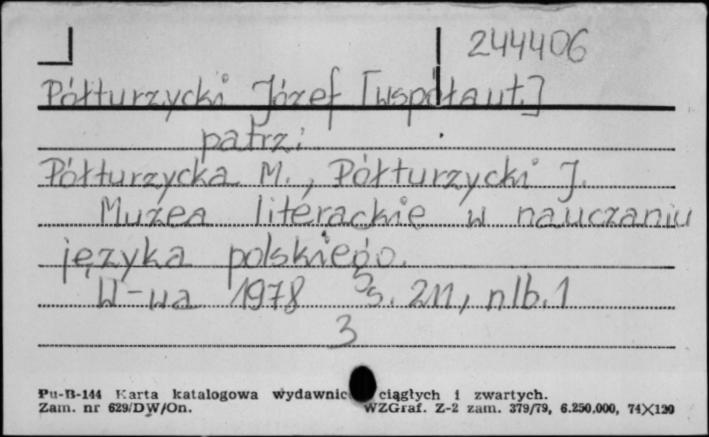 244406
Półturzycki Józef [współaut.]
patrz:
Półturzycka M., Półturzycki J.
Muzea literackie w nauczaniu
języka polskiego.
W-wa 1978 s. 211, nlb. 1
3
Pu-B-144 Karta katalogowa wydawnic ciągłych i zwartych.
Zam. nr 629/DW/On. WZGraf. Z-2 zam. 379/79, 6.250.000, 74X120